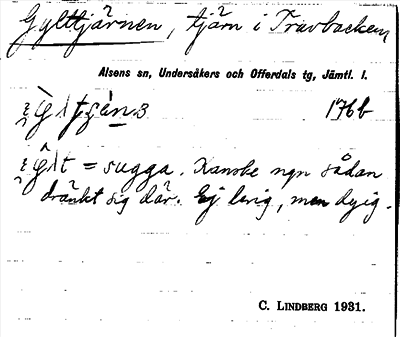 Gylttjärnen, tjärn i Travbacken
Alsens sn, Undersåkers och Offerdals tg, Jämtl. l.
176b
= sugga. Kanske ngn sådan
dränkt sig där. Ej lerig, men dyig.
C. LINDBERG 1931.